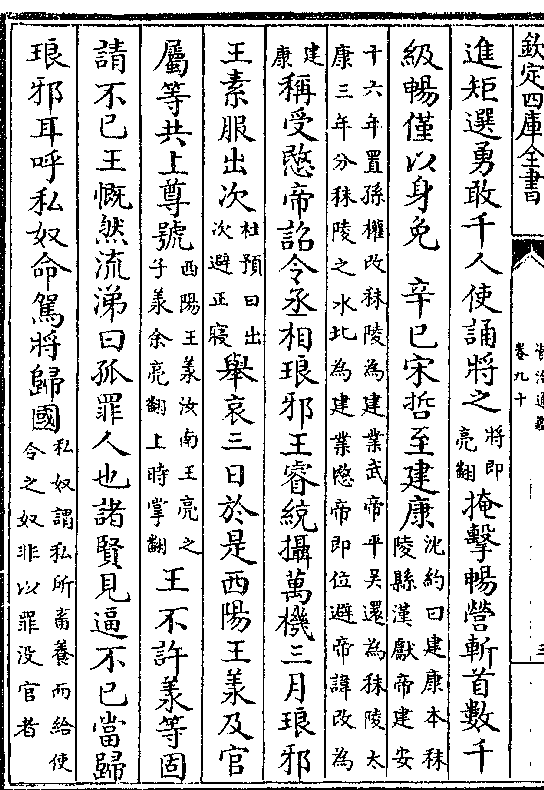 欽定四庫全書
卷九十
進矩選勇敢千人使誦將之將即亮翻掩擊暢營斬首數千
級暢僅以身免　辛巳宋哲至建康沈約曰建康本秣陵縣漢獻帝建安
十六年置孫權改秣陵為建業武帝平吳還為秣陵太
康三年分秣陵之水北為建業愍帝即位避帝諱改為
建康稱受愍帝詔令丞相琅邪王睿統攝萬機三月琅邪
王素服出次杜預曰出次避正寢舉哀三日於是西陽王羕及官
屬等共上尊號西陽王羕汝南王亮之子羕余亮翻上時掌翻王不許羕等固
請不已王慨然流涕曰孤罪人也諸賢見逼不已當歸
琅邪耳呼私奴命駕將歸國私奴謂私所畜養而給使令之奴非以罪没官者